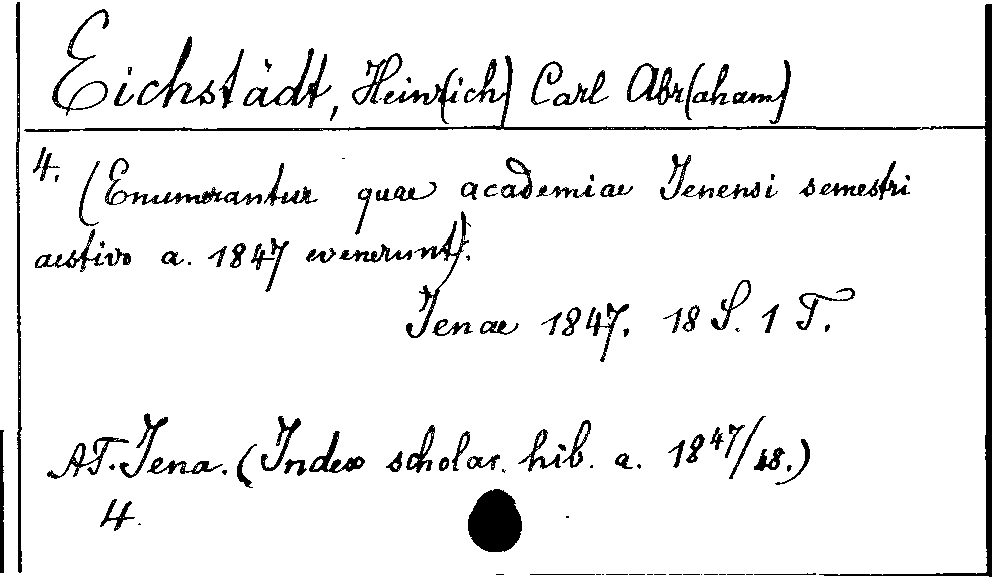 Eichstädt, Hein(rich) Carl Abr(aham)
4. (Enumerantur quae academiae Jenensi semestri
aestivo a. 1847 evenerunt).
Jenae 1847. 18 S. 1 T.
AT. Jena. (Index scholar. hib. a. 1847/48.)
4